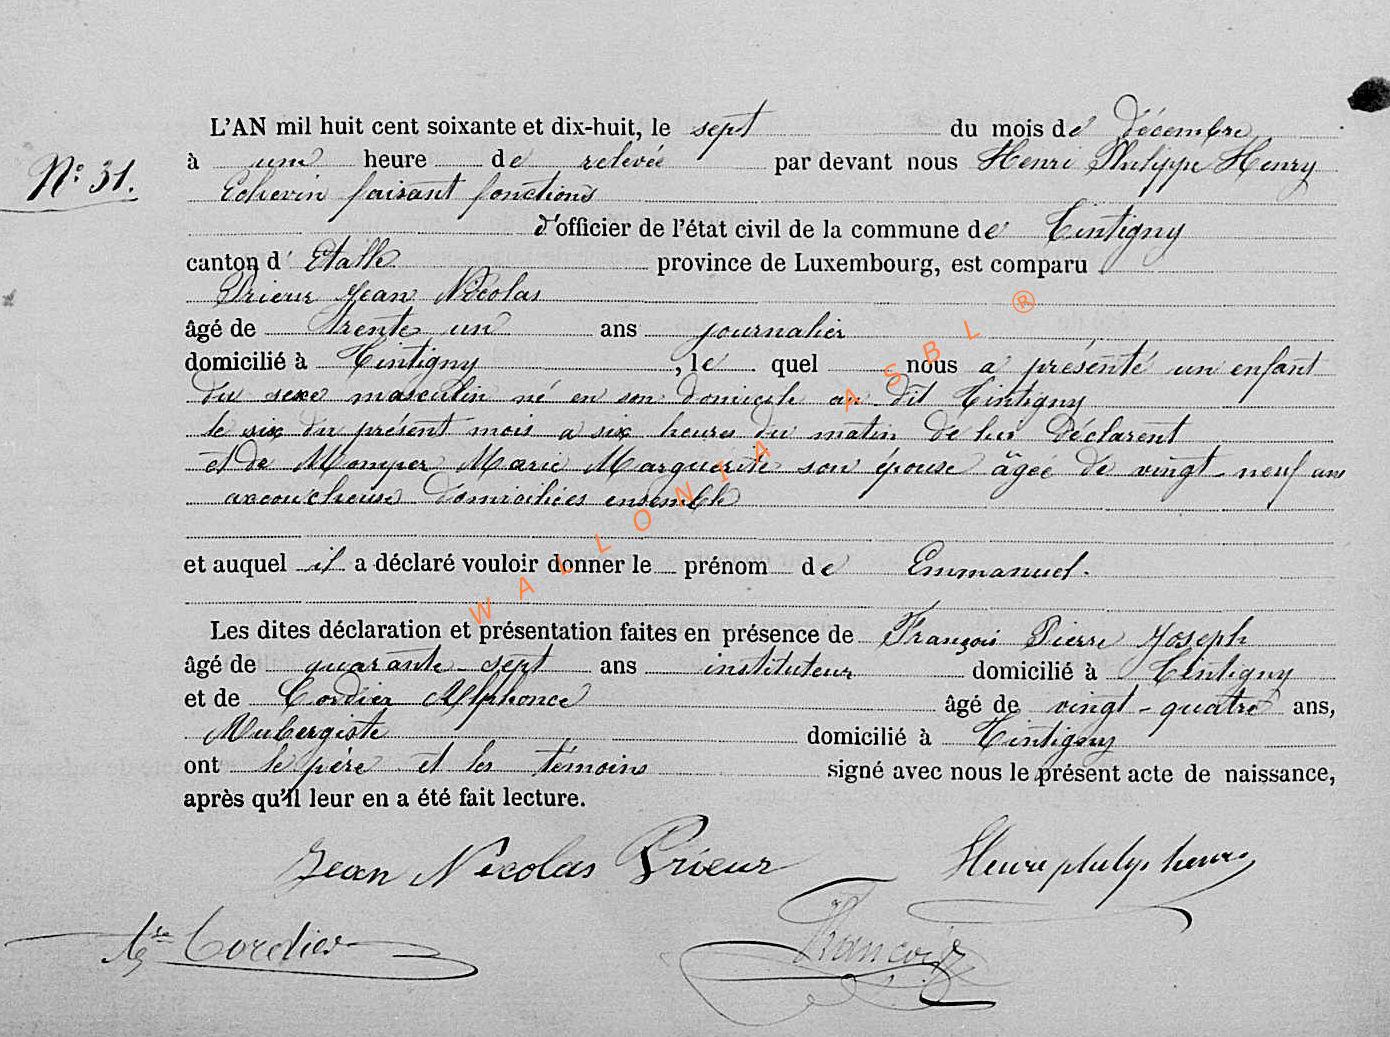 L'AN mil huit cent soixante et dix-huit, le sept du mois de Décembre
N° 31.
à une heure de relevée par devant nous Henri Philippe Henry
Echevin faisant fonctions
d'officier de l'état civil de la commune de Tintigny
canton d' Etalle province de Luxembourg, est comparu
Prieur Jean Nicolas
âgé de trente un ans journalier
domicilié à Tintigny, le quel nous a présenté un enfant
du sexe masculin né en son domicile au dit Tintigny
le six du présent mois a six heures du matin de lui Déclarent
et de Momper Marie Marguerite son épouse âgée de vingt-neuf ans
accoucheuse domiciliées ensemble
et auquel il a déclaré vouloir donner le prénom de Emmanuel.
Les dites déclaration et présentation faites en présence de François Pierre Joseph
âgé de quarante-sept ans instituteur domicilié à Tintigny
et de Cordier Alphonce âgé de vingt-quatre ans,
Aubergiste domicilié à Tintigny
ont le père et les témoins signé avec nous le présent acte de naissance,
après qu'il leur en a été fait lecture.
Jean Nicolas Prieur
Cordier
François
WALLONIA ASBL ®